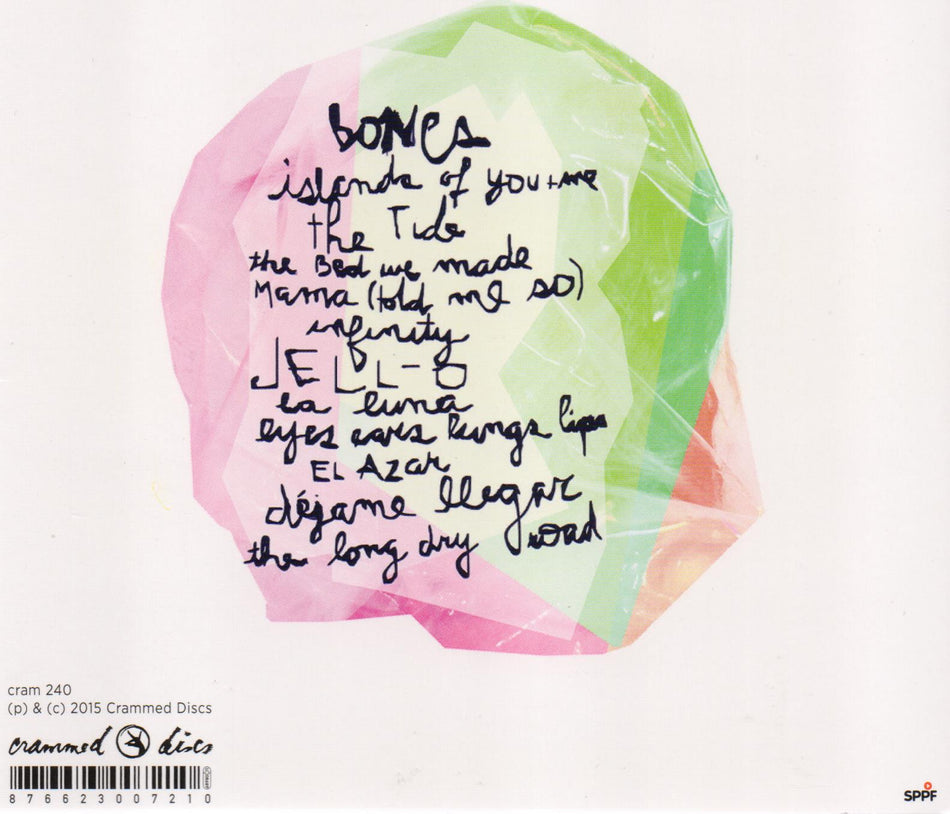 BONes
islands of you + me
the Tide
the Bed we made
Mama (told me so)
infinity
JELL-O
la luna
eyes ears lungs lips
EL AZar
déjame llegar
the long dry road
cram 240
(p) & (c) 2015 Crammed Discs
crammed discs
876623007210
SPPF